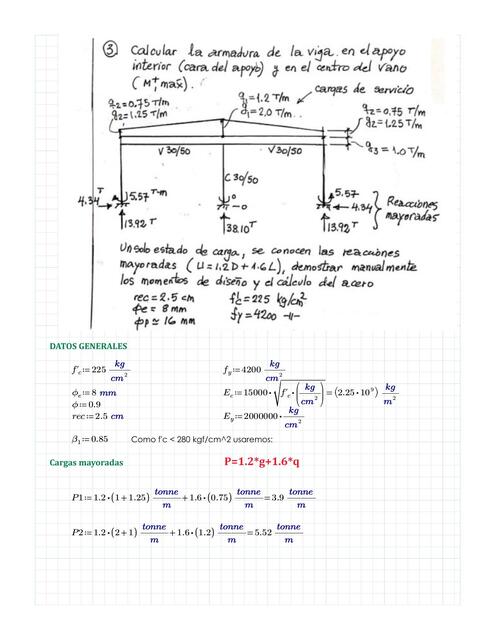 ③ Calcular la armadura de la viga en el apoyo
interior (cara del apoyo) y en el centro del vano
(M⁺, máx).
q₂=0.75 T/m
g₂=1.25 T/m
q₁=1.2 T/m
g₁=2.0 T/m
cargas de servicio
q₂=0.75 T/m
g₂=1.25 T/m
V 30/50
V 30/50
g₃=1.0 T/m
C 30/50
4.34 T
5.57 T-m
0
0
5.57
4.34
Reacciones
mayoradas
13.92 T
38.10 T
13.92 T
Un solo estado de carga, se conocen las reacciones
mayoradas (U=1.2D+1.6L), demostrar manualmente
los momentos de diseño y el cálculo del acero
rec=2.5 cm
f'c=225 kg/cm²
φe=8mm
fy=4200 -11-
φp≃16 mm
DATOS GENERALES
f'c:=225 kg/cm²
fy:=4200 kg/cm²
ϕe:=8 mm
Ec:=15000·√(f'c·(kg/cm²))=(2.25·10⁹) kg/m²
ϕ:=0.9
rec:=2.5 cm
Ey:=2000000·kg/cm²
β₁:=0.85
Como f'c < 280 kgf/cm^2 usaremos:
Cargas mayoradas
P=1.2*g+1.6*q
P1:=1.2·(1+1.25) tonne/m+1.6·(0.75) tonne/m=3.9 tonne/m
P2:=1.2·(2+1) tonne/m+1.6·(1.2) tonne/m=5.52 tonne/m